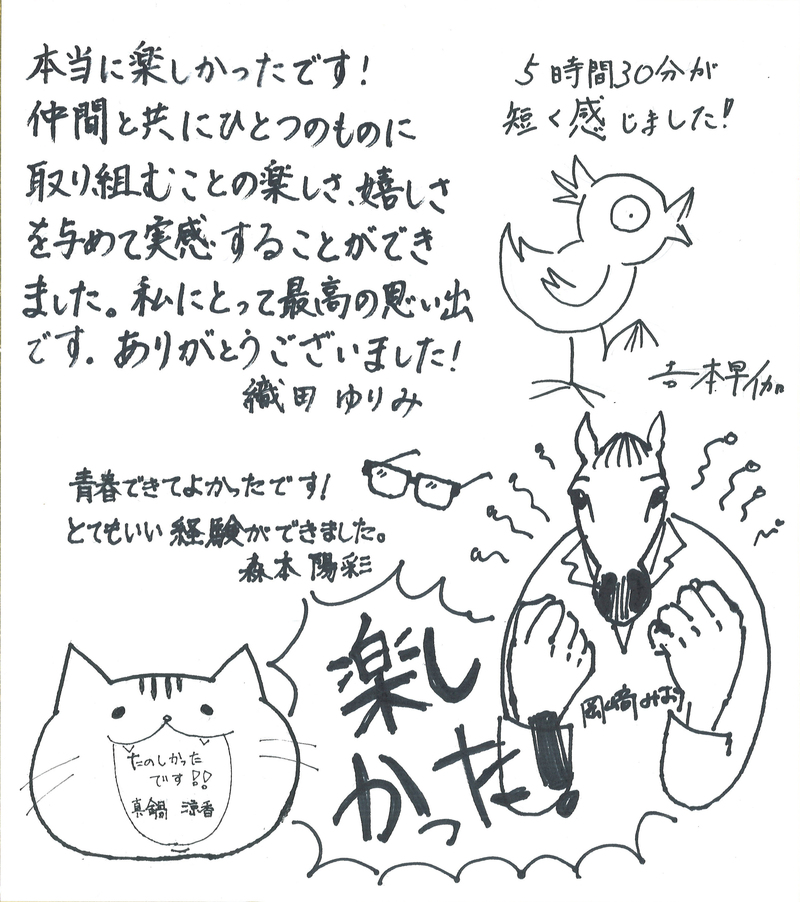 本当に楽しかったです!
仲間と共にひとつのものに
取り組むことの楽しさ、嬉しさ
を与めて実感することができ
ました。私にとって最高の思い出
です。ありがとうございました!
織田 ゆりみ
5時間30分が
短く感じました!
吉本早伽
青春できてよかったです!
とてもいい経験ができました。
森本 陽彩
楽し
かった!
岡崎 みおり
たのしかった
です!!
真鍋 涼香